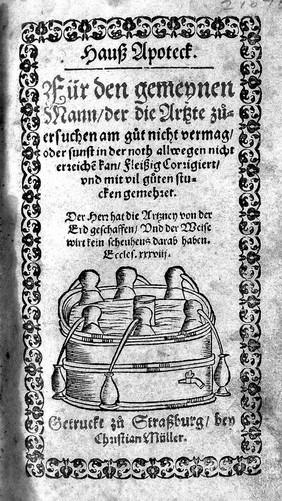 Hauß Apoteck.
Für den gemeynen
Mann/ der die Artzte zů
ersuchen am gůt nicht vermag/
oder sunst in der noth allwegen nicht
erreichẽ kan/ Fleißig Corrigiert/
vnd mit vil gůten stu-
cken gemehret.
Der Herr hat die Artzney von der
Erd geschaffen/ Vnd der Weise
wirt kein scheuhens darab haben.
Eccles. xxxviij.
Getruckt zů Straßburg/ bey
Christian Müller.